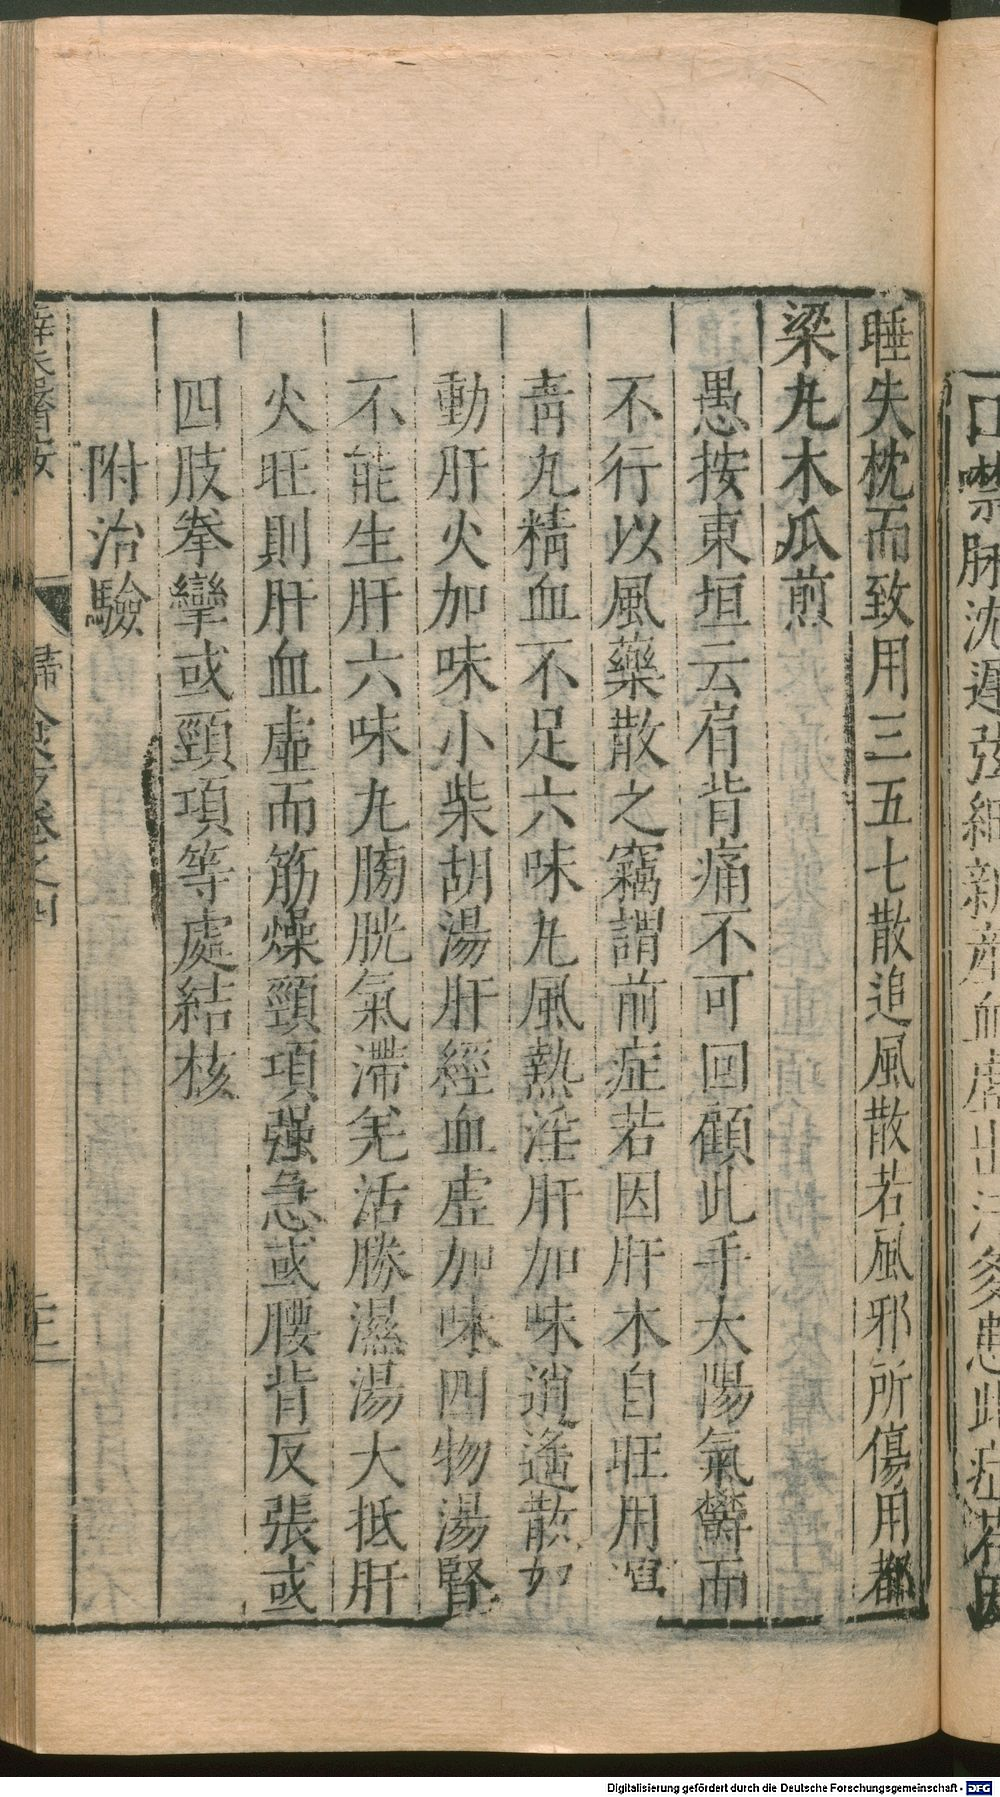 口禁脉沈遲弦細新產血虛出汗多患此症若因
睡失枕而致用三五七散追風散若風邪所傷用都
梁丸木瓜煎
愚按東垣云肩背痛不可回顧此手太陽氣欝而
不行以風藥散之竊謂前症若因肝木自旺用瀉
青丸精血不足六味丸風熱淫肝加味逍遙散如
動肝火加味小柴胡湯肝經血虛加味四物湯腎
不能生肝六味丸膀胱氣滯羌活勝濕湯大抵肝
火旺則肝血虛而筋燥頸項强急或腰背反張或
四肢拳攣或頸項等處結核
附治驗
薛氏醫按 卷之四
Digitalisierung gefördert durch die Deutsche Forschungsgemeinschaft - DFG